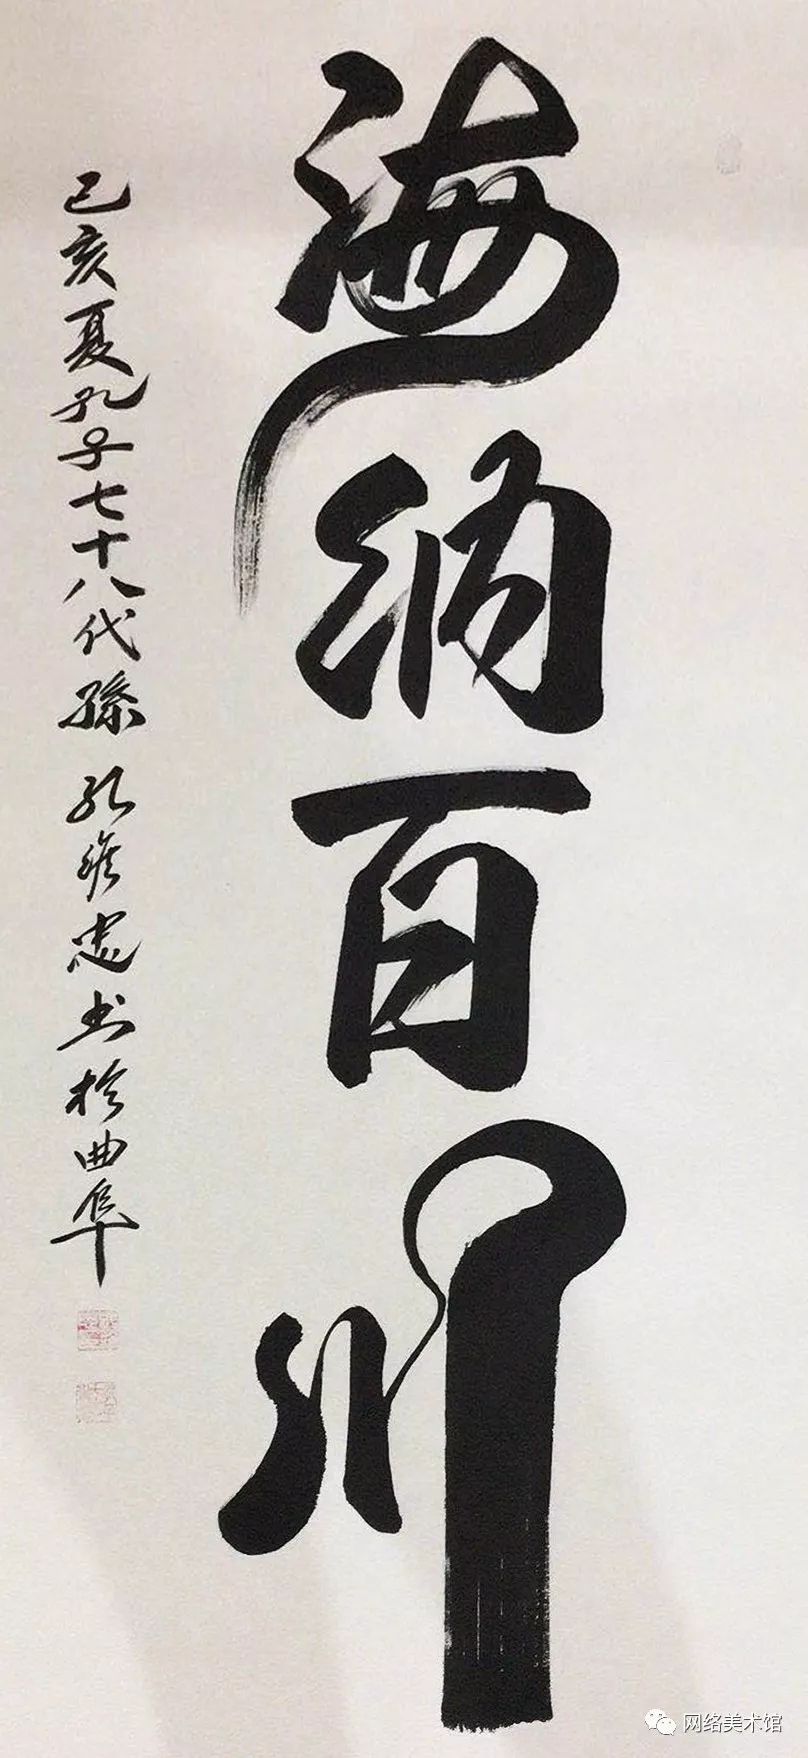 海纳百川
己亥夏孔子七十八代孙孔维忠书于曲阜
网络美术馆